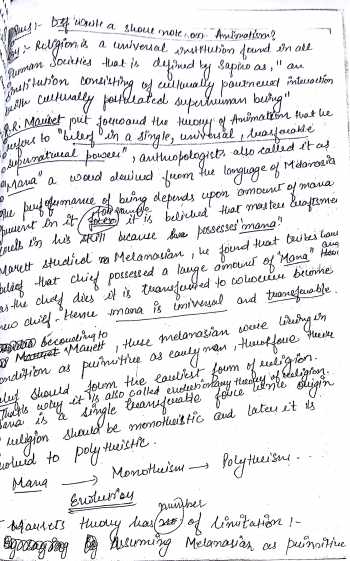 Ques:- Write a short note on Animatism?
:- Religion is a universal institution found in all
human societies that is defined by as, "an
institution consisting of culturally patterned interaction
with culturally postulated superhuman being"
R.R. Marett put forward the theory of Animatism that he
refers to "belief in a single, universal, transferable
supernatural power", anthropologists also called it as
"Mana" a word derived from the language of Melanesia
The performance of being depends upon amount of mana
present in it for example it is believed that master craftsmen
in his skill because possesses "mana"
Marett studied Melanesian, he found that tribes have
belief that chief possessed a large amount of "Mana"
as the chief dies it is transferred to whoever become
new chief. Hence mana is universal and transferable.
According to
Marett, these melanesian were living in
condition as primitive as early man, therefore these
belief should form the earliest form of religion.
That's why it is also called evolutionary theory of religion.
Mana is a single transferable force while origin
religion should be monotheistic and later it is
evolved to polytheistic.
Mana → Monotheism → Polytheism...
Evolution
Maretts theory has number of limitation :-
Assuming Melanesian as primitive